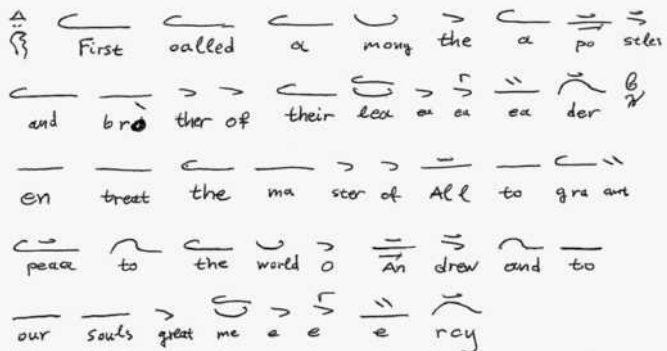 First called a mong the a po stles
and bro ther of their lea ea ea ea der
en treat the ma ster of All to gra ant
peace to the world O An drew and to
our souls great me e e e rcy